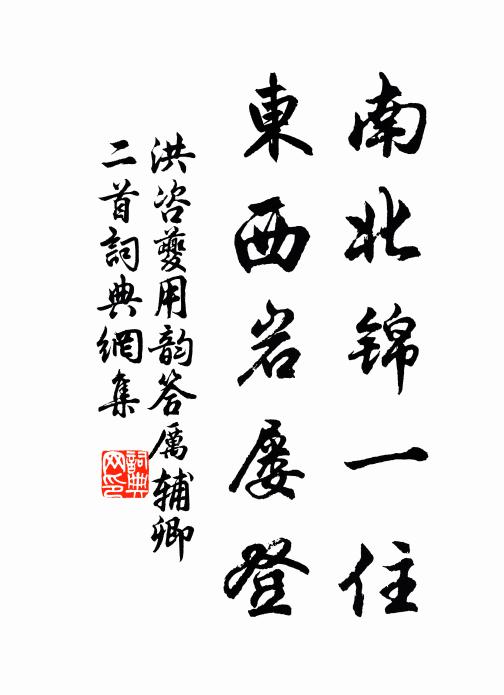 南北锦一住
東西岩屡登
洪咨夔用韵答厲辅卿
二首詞典網集
詞典
网印